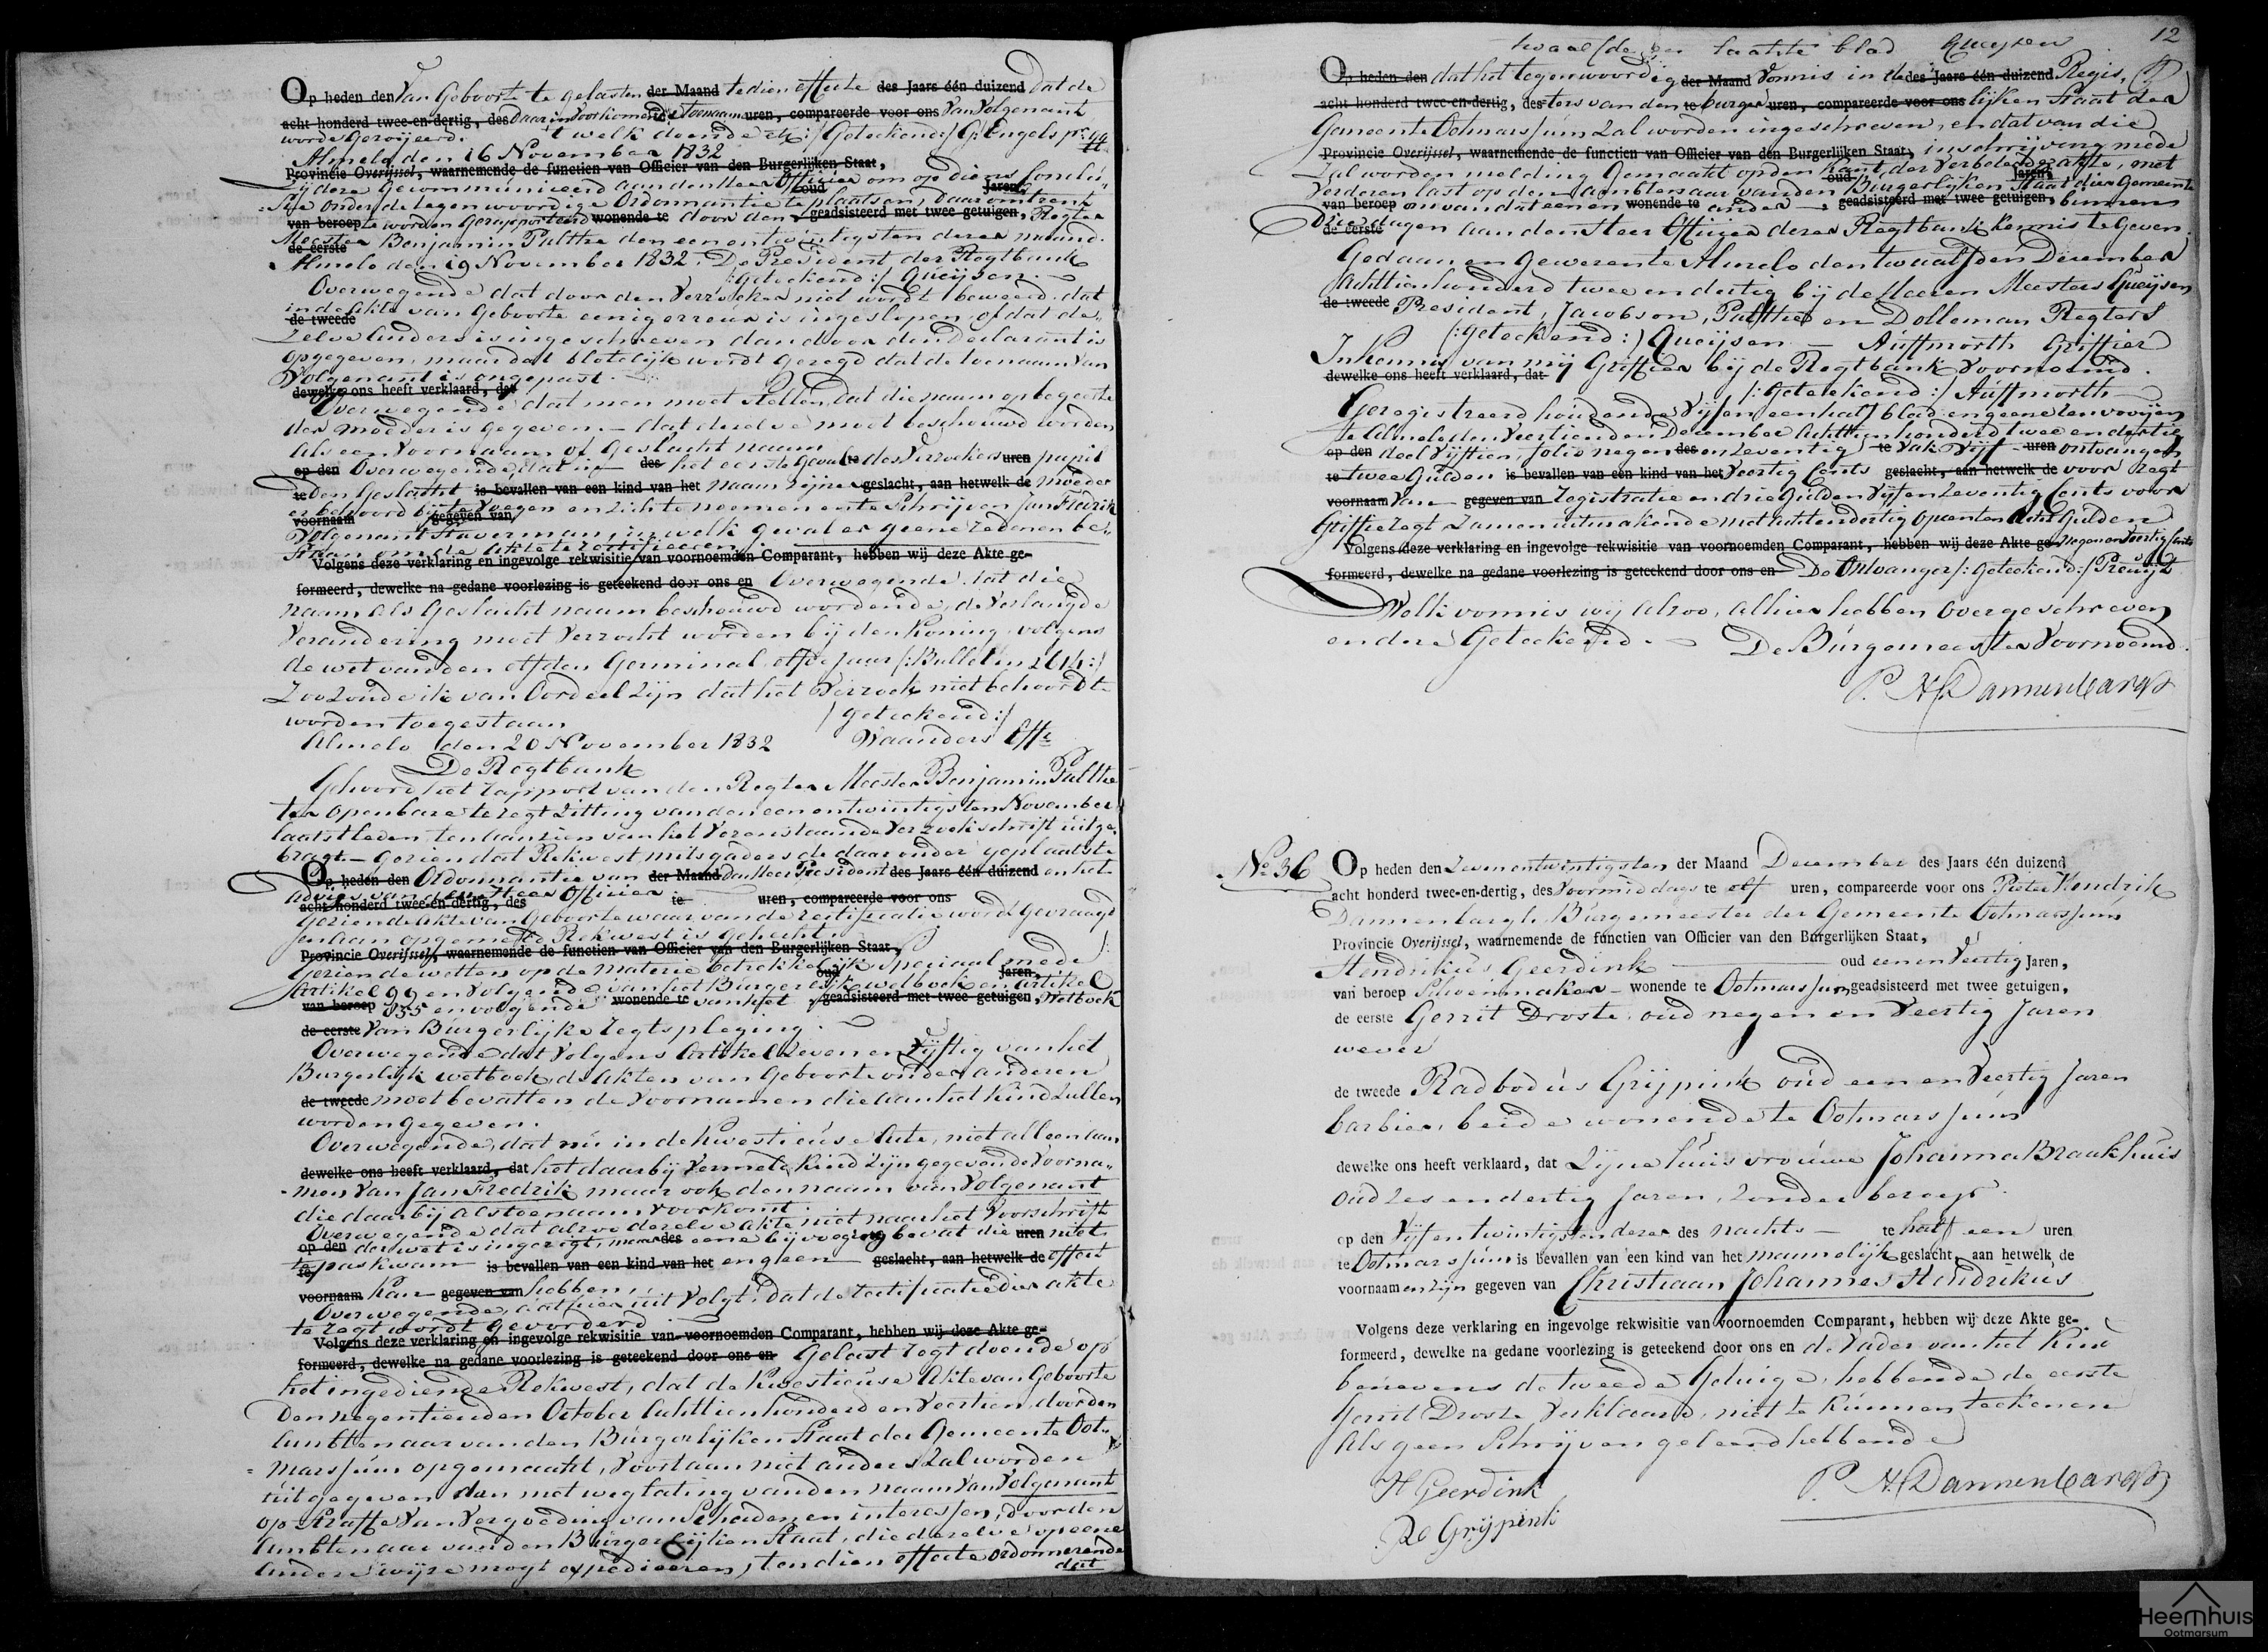 Op heden den van Geboorte te gelasten der Maand te dien effecte des Jaars één duizend dat de
acht honderd twee-en-dertig, des daar in voorkomende toenaam uren, compareerde voor ons van Volgenant
worde Geroijeerd. 't welk doende &c /:Geteekend:/ G. Engels pr.
Almelo den 16 November 1832
Provincie Overijssel, waarnemende de functien van Officier van den Burgerlijken Staat,
Zij deze gecommuniceerd aan den Heer Officier om op diens conclu-
oud Jaren,
sie onder de tegenwoordige Ordonnantie te plaatsen, daaromtrent
van beroep te worden Gerapporteerd wonende te door den geadsisteerd met twee getuigen, Regter
Meester Benjamin Palthe den een en twintigsten dezer maand.
de eerste
Almelo den 19 November 1832. De President der Regtbank
/:Geteekend:/ Queijsen.
Overwegende dat door den Verzoeker niet wordt beweerd, dat
in de Akte van Geboorte eenig erreur is ingeslopen, of dat de-
de tweede
zelve anders is ingeschreven dan door den Declarant is
opgegeven, maar dat blotelijk wordt gezegd dat de toenaam van
Volgenant is ongepast.
dewelke ons heeft verklaard, dat
Overwegende dat men moet stellen, dat die naam op begeerte
der moeder is gegeven. — dat dezelve moet beschouwd worden
Als een Voornaam of Geslacht naam
op den Overwegende, dat in des het eerste geval te des Verzoekers uren pupil
te den Geslacht is bevallen van een kind van het naam zijner geslacht, aan hetwelk de moeder
er behoord bij te voegen en zich te noemen en te Schrijven Jan Fredrik
voornaam gegeven van
Volgenant Haverman, in welk geval er geene redenen be-
staan om de Akte te rectificeeren
Volgens deze verklaring en ingevolge rekwisitie van voornoemden Comparant, hebben wij deze Akte ge-
formeerd, dewelke na gedane voorlezing is geteekend door ons en Overwegende dat die
naam als Geslacht naam beschouwd wordende, de Verlangde
Verandering moet Verzocht worden bij den Koning, volgens
de wet van den elfden Germinal elfde Jaar /:Bulletin 2614:/
Zoo zoude ik van Oordeel zijn dat het Verzoek niet behoord te
worden toegestaan /:geteekend:/
Almelo den 20 November 1832 Vaanders Offr
De Regtbank
Gehoord het rapport van den Regter Meester Benjamin Palthe
ter openbare teregt zitting van den een en twintigsten November
laatstleden, ten aanzien van het vorenstaande Verzoekschrift uitge-
bragt. — Gezien dat Rekwest, mitsgaders de daar onder geplaatste
Op heden den Ordonnantie van der Maand den Heer President des Jaars één duizend en het
advies van den Heer Officier
acht honderd twee-en-dertig, des te uren, compareerde voor ons
Gezien de Akte van Geboorte waarvan de rectificatie wordt Gevraagd
en aan opgemeld Rekwest is gehecht.
Provincie Overijssel, waarnemende de functien van Officier van den Burgerlijken Staat,
Gezien de wetten op de materie betrekkelijk speciaal mede
oud Jaren,
Artikel 99 en volgende van het Burgerlijk wetboek en artikel
van beroep 855 en volgende wonende te van het geadsisteerd met twee getuigen, Wetboek
de eerste van Burgerlijke regtspleging.
Overwegende dat volgens Artikel zeven en vijftig van het
Burgerlijk wetboek, de Akten van Geboorte onder anderen
de tweede moet bevatten de Voornamen die aan het Kind zullen
worden gegeven.
Overwegende, dat nu in de kwestieuse Acte, niet alleen aan
dewelke ons heeft verklaard, dat het daarbij vermelde Kind zijn gegeven de Voorna-
men van Jan Fredrik maar ook den naam van Volgenant
die daarbij als toenaam voorkomt.
Overwegende dat alzoo dezelve akte niet naar het Voorschrift
op den der wet is ingerigt, maar des eene bijvoeging bevat die uren niet
te pas kwam is bevallen van een kind van het en geen geslacht, aan hetwelk de effect
voornaam kan gegeven van hebben.
Overwegende, dat hier uit volgt, dat de rectificatie dier akte
te regt wordt gevorderd
Volgens deze verklaring en ingevolge rekwisitie van voornoemden Comparant, hebben wij deze Akte ge-
formeerd, dewelke na gedane voorlezing is geteekend door ons en Gelast regt doende op
het ingediende Rekwest, dat de kwestieuse Akte van Geboorte
den negentienden October Achttienhonderd en Veertien, door den
Ambtenaar van den Burgerlijken Staat der Gemeente Oot-
marssum opgemaakt, voortaan niet anders zal worden
uitgegeven dan met weglating van den naam van Volgenant
op Straffe van Vergoeding van Schaden en interessen, door den
Ambtenaar van den Burgerlijken Staat, die dezelve op eene
andere wijze mogt expedieeren, ten dien effecte ordonnerende
dat
twaalfde en laatste blad Queysen 12
Op heden den dat het tegenwoordig der Maand Vonnis in de des Jaars één duizend Regis-
acht honderd twee-en-dertig, des ters van den te burger uren, compareerde voor ons lijken Staat der
Gemeente Ootmarssum zal worden ingeschreven, en dat van die
Provincie Overijssel, waarnemende de functien van Officier van den Burgerlijken Staat, inschrijving mede
zal worden melding Gemaakt op den kant der Verbeterde akte, met
oud Jaren,
verderen last op den Ambtenaar van den Burgerlijken Staat dier Gemeente
van beroep om van dat een en wonende te ander geadsisteerd met twee getuigen, binnen
drie dagen aan den Heer Officier dezer Regtbank kennis te Geven.
de eerste
Gedaan en Gewezen te Almelo den twaalfden December
Achttienhonderd twee en dertig bij de Heeren Meesters Queijsen
de tweede President, Jacobson, Palthe en Dolleman Regters
/:geteekend:/ Queijsen — Auffmorth Griffier
In kennis van mij Griffier bij de Regtbank Voornoemd.
dewelke ons heeft verklaard, dat
/:Geteekend:/ Auffmorth
Geregistreerd houdende Vijf en een half blad en geene renvooijen
te Almelo den Veertienden December Achttienhonderd twee en dertig
op den deel Vijftien, folio negen des en Zeventig te Vak Vijf uren ontvangen
te twee Gulden is bevallen van een kind van het Veertig Cents geslacht, aan hetwelk de voor regt
voornaam Van gegeven van registratie en drie Gulden Vijf en Zeventig Cents voor
Griffieregt zamen uitmakende met acht en dertig opcenten Acht Gulden
Volgens deze verklaring en ingevolge rekwisitie van voornoemden Comparant, hebben wij deze Akte ge- Negen en Veertig Cents
formeerd, dewelke na gedane voorlezing is geteekend door ons en De Ontvanger /:Geteekend:/
Welk vonnis wij alzoo, alhier hebben Overgeschreven
en deze Geteekend. De Burgemeester Voornoemd.
P. H. Dannenbargh
No 36 Op heden den Zevenentwintigsten der Maand December des Jaars één duizend
acht honderd twee-en-dertig, des Voormiddags te elf uren, compareerde voor ons Peter Hendrik
Dannenbargh, Burgemeester der Gemeente Ootmarssum
Provincie Overijssel, waarnemende de functien van Officier van den Burgerlijken Staat,
Hendrikus Geerdink oud een en Veertig Jaren,
van beroep Schoenmaker wonende te Ootmarssum geadsisteerd met twee getuigen,
de eerste Gerrit Droste, oud negen en Veertig Jaren
wever
de tweede Radbodus Grijpink oud een en Veertig Jaren
barbier, beide wonende te Ootmarssum
dewelke ons heeft verklaard, dat Zijne huisvrouwe Johanna Braakhuis
oud zes en dertig Jaren, zonder beroep.
op den Vijf en twintigsten dezer des nachts te half een uren
te Ootmarssum is bevallen van een kind van het mannelijk geslacht, aan hetwelk de
voornaamen zijn gegeven van Christiaan Johannes Hendrikus
Volgens deze verklaring en ingevolge rekwisitie van voornoemden Comparant, hebben wij deze Akte ge-
formeerd, dewelke na gedane voorlezing is geteekend door ons en de Vader van het Kind
benevens de tweede Getuige, hebbende de eerste
Gerrit Droste Verklaard, niet te kunnen teekenen
Als geen Schrijven geleerd hebbende
H Geerdink P. H. Dannenbargh
Rs Grijpink
Heemhuis
Ootmarsum